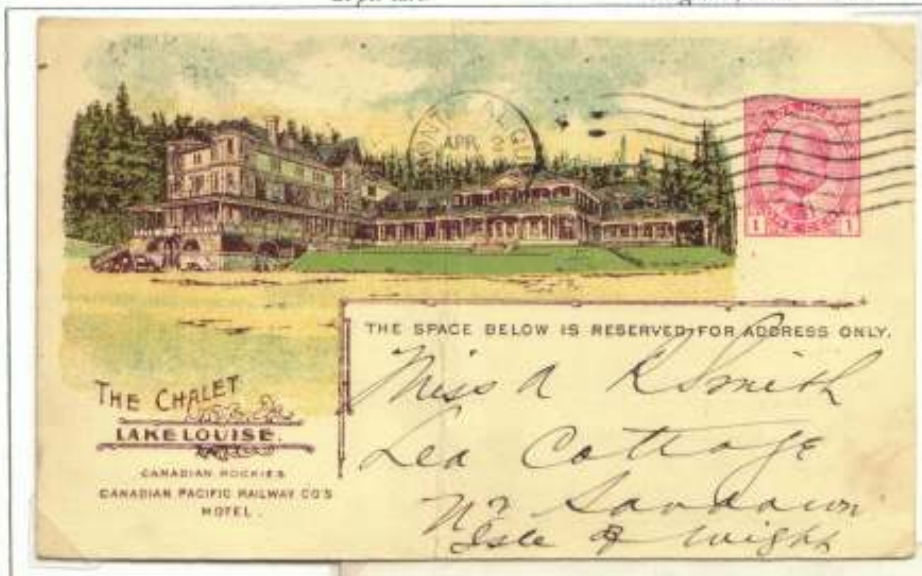 MONTREAL QUE
APR
THE SPACE BELOW IS RESERVED FOR ADDRESS ONLY.
Miss A K Smith
Lea Cottage
Nr Sandown
Isle of Wight
THE CHALET
LAKE LOUISE.
CANADIAN ROCKIES
CANADIAN PACIFIC RAILWAY CO'S
HOTEL.
1 1